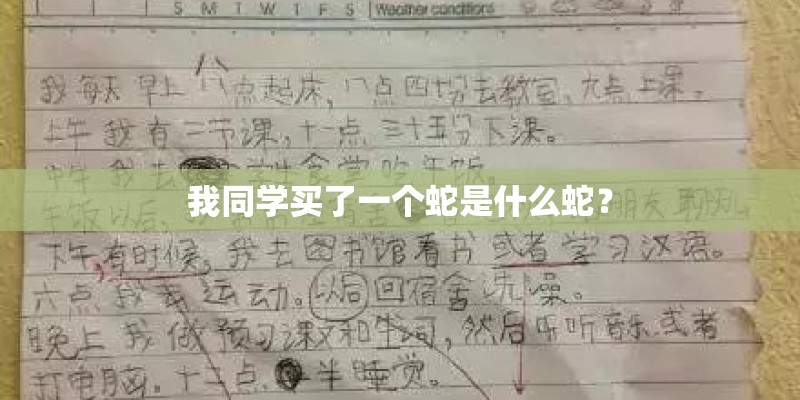 S M T W T F S Weather conditions
我每天早上八点起床,八点四十分去教室,九点上课。
上午我有二节课,十一点三十五分下课。
中午我去学生食堂吃午饭。
我同学买了一个蛇是什么蛇?
午饭以后,朋友聊
下午,有时候,我去图书馆看书或者学习汉语。
六点我去运动。以后回宿舍洗澡。
晚上我做预习课文和生词,然后听听音乐或者
打电脑。十二点半睡觉。